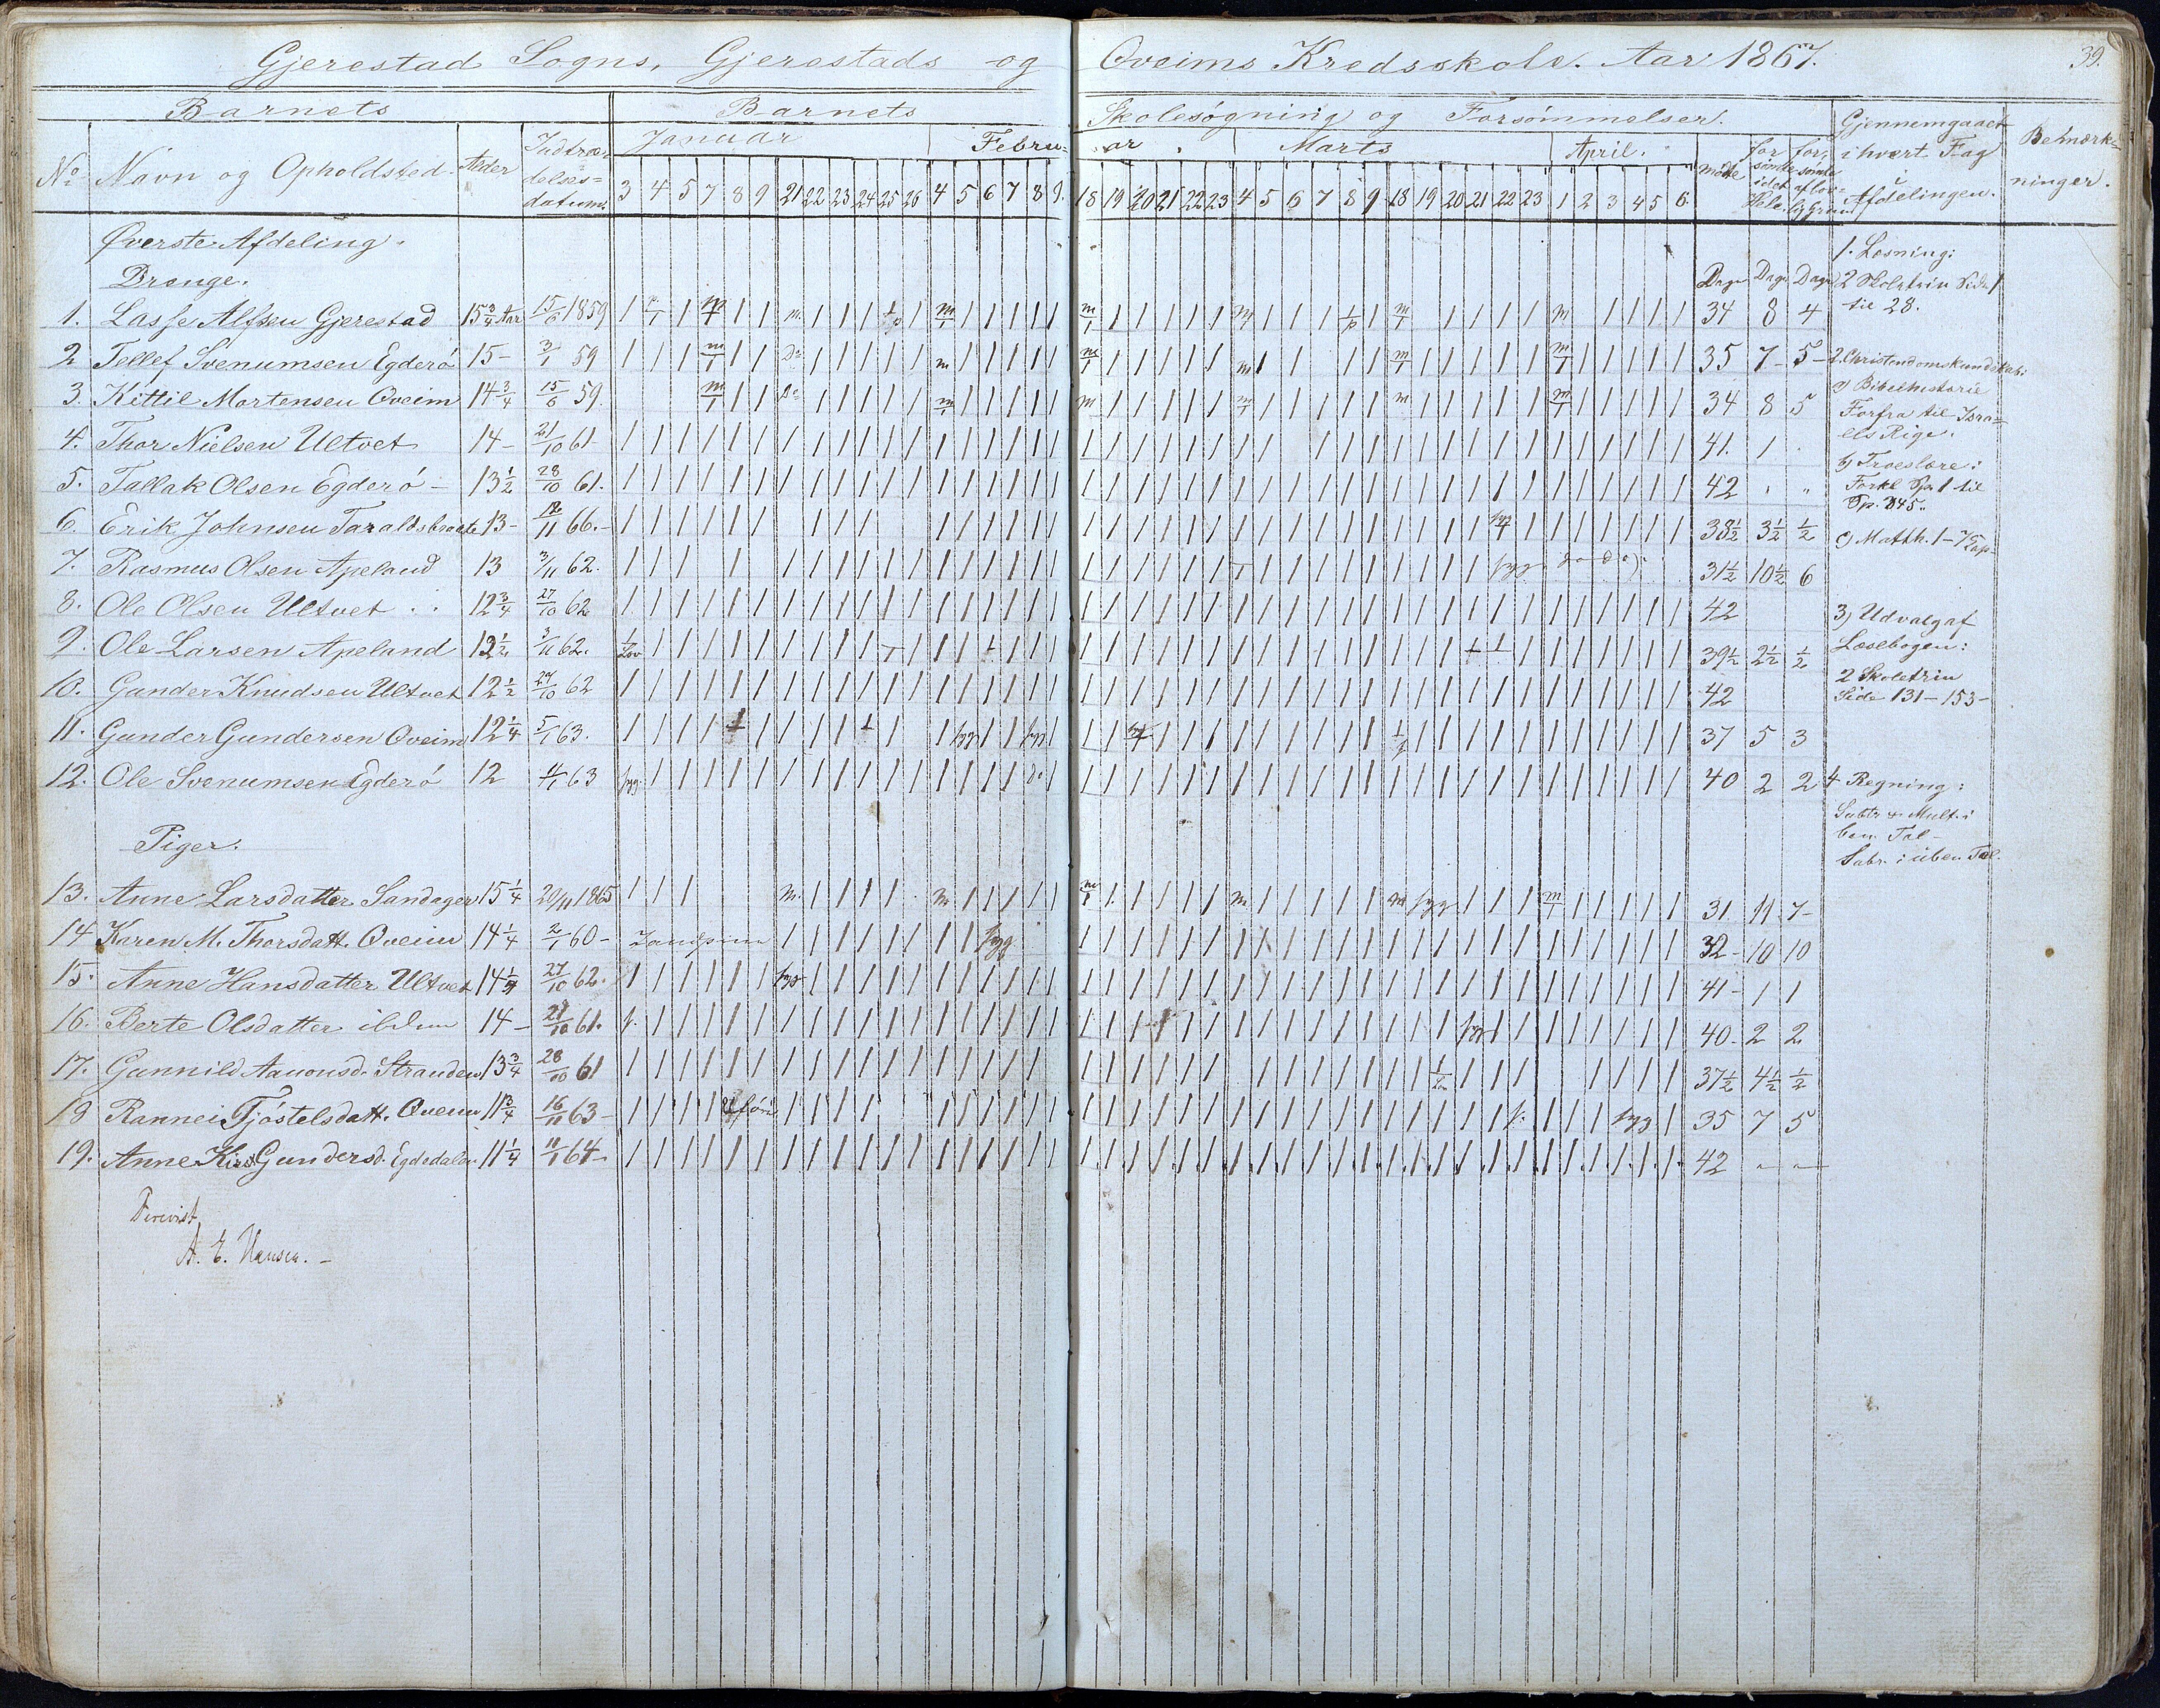 Gjerestad Sogns, Gjerestads og Oveims Kredsskole. Aar 1867.
39.
Barnets Barnets Skolesøgning og Forsømmelser. Gjennemgaaet i hvert Fag i Afdelingen. Bemærkninger.
No Navn og Opholdssted. Alder Indtrædelsesdatum. Januar Februar. Marts April. mødte forsømte i det Hele forsømte af lovlig Grund
3 4 5 7 8 9 21 22 23 24 25 26 4 5 6 7 8 9. 18 19 20 21 22 23 4 5 6 7 8 9 18 19 20 21 22 23 1 2 3 4 5 6
Øverste Afdeling.
Drenge. Dage Dage Dage
1. Lasse Alfsen Gjerestad 15 3/4 Aar 15/6 1859 34 8 4
2 Tellef Svenumsen Egderø 15 - 3/1 59 35 7 - 5 -
3. Kittil Mortensen Oveim 14 3/4 15/6 59. 34 8 5
4. Thor Nielsen Ultvet 14 - 21/10 61 - 41. 1
5. Tallak Olsen Egderø - 13 1/2 28/10 61. 42 " "
6. Erik Johnsen Taraldsbraate 13 - 12/11 66. - 38 1/2 3 1/2 1/2
7. Rasmus Olsen Apeland 13 3/11 62. 31 1/2 10 1/2 6
8. Ole Olsen Ultvet 12 3/4 27/10 62 42
9. Ole Larsen Apeland 12 1/2 3/11 62. 39 1/2 2 1/2 1/2
10. Gunder Knudsen Ultvet 12 1/2 27/10 62 42
11. Gunder Gundersen Oveim 12 1/4 5/1 63. 37 5 3
12. Ole Svenumsen Egderø 12 4/1 63 40 2 2
Piger.
13. Anne Larsdatter Sandager 15 1/4 20/11 1865 31 11 7 -
14 Karen M. Thorsdatt. Oveim 14 1/4 2/1 60 - 32 - 10 10
15. Anne Hansdatter Ultvet 14 1/4 27/10 62. 41 - 1 1
16. Berte Olsdatter ibidem 14 - 21/10 61. 40 - 2 2
17. Gunnild Aanonsd. Stranden 13 3/4 28/10 61 37 1/2 4 1/2 1/2
18 Rannei Tjøstelsdatt. Oveim 11 3/4 16/11 63 - 35 7 5
19. Anne Kirst. Gundersd. Egdedalen 11 1/4 11/1 64 - 42 - -
A. E. Hansen. -
1. Læsning:
2 Skoletrin Side 1
til 28.
2. Christendomskundskab:
a) Bibelhistorie
Forfra til Isra=
els Rige.
b) Troeslære:
Forkl Sp. 1 til
Sp. 345.
c) Matth. 1 - 7 Cap.
3) Udvalg af
Læsebogen:
2 Skoletrin
Side 131 - 153 -
4 Regning:
Subtr & Mult. i
ben. Tal -
Subr. i uben Tal.